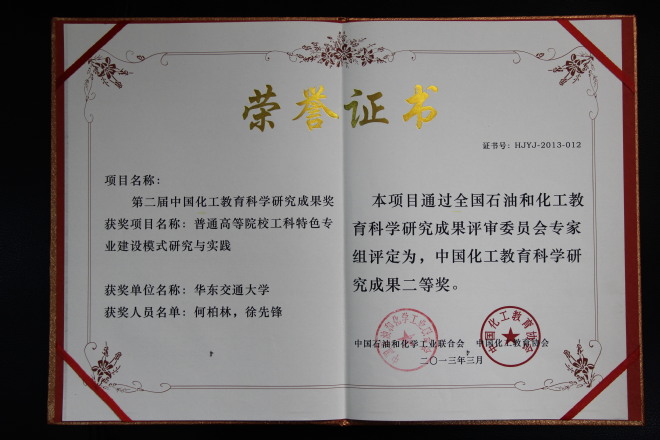 荣誉证书
证书号：HJYJ-2013-012
项目名称：
第二届中国化工教育科学研究成果奖
获奖项目名称：普通高等院校工科特色专
业建设模式研究与实践
获奖单位名称：华东交通大学
获奖人员名单：何柏林，徐先锋
本项目通过全国石油和化工教
育科学研究成果评审委员会专家
组评定为，中国化工教育科学研
究成果二等奖。
中国石油和化学工业联合会 中国化工教育协会
二〇一三年三月
中国化工教育协会